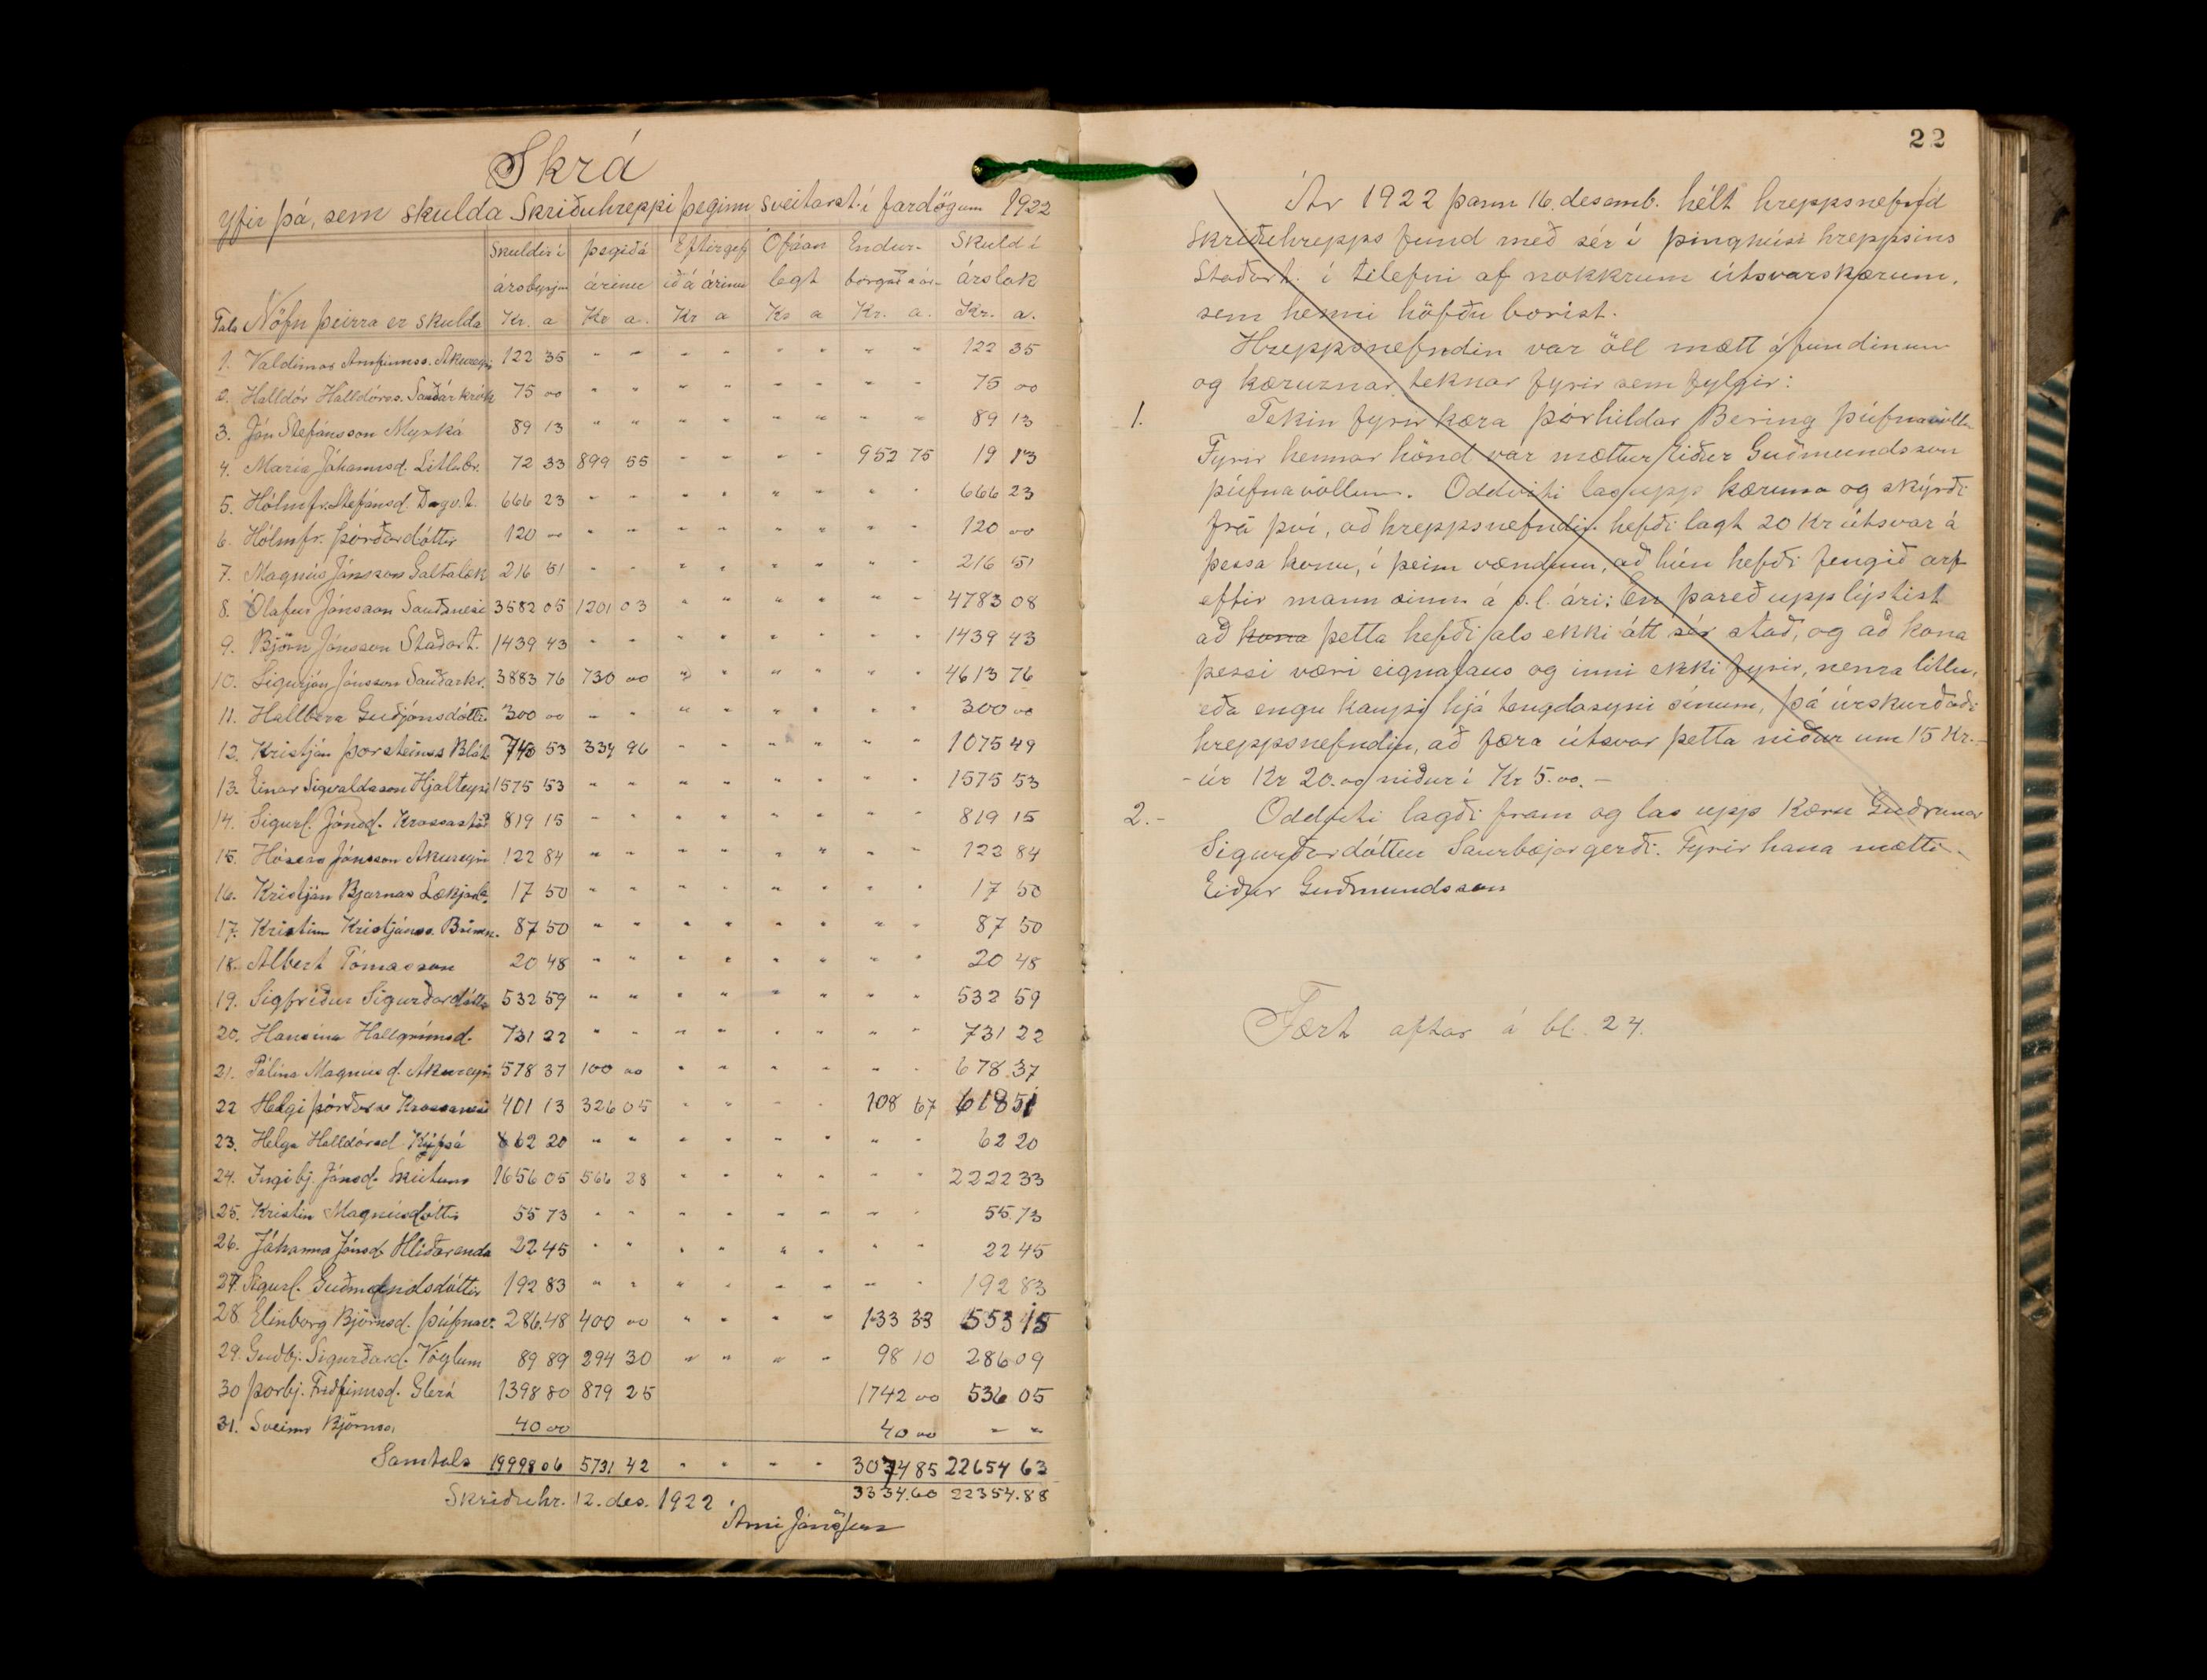 Skrá
yfir þá, sem skulda Skriðuhreppi þeginn sveitarst. í fardögum 1922
Skuldir í þegið á Eftirgef Ófáan Endur- Skuld í
ársbyrjun árinu ið á árinu legt borgað á ár. árslok
Tala Nöfn þeirra er skulda Kr. a Kr a. Kr a Kr a Kr. a. Kr. a.
1. Valdimar Arnfinnss. Akureyri 122 35 " " " " " " " " 122 35
2. Halldór Halldórss. Sauðárkrók 75 00 " " " " " " " " 75 00
3. Jón Stefánsson Myrká 89 13 " " " " " " " " 89 13
4. María Jóhannsd. Litlubr. 72 33 899 55 " " " " 952 75 19 13
5. Hólmfr. Stefánsd. Dagv.t. 666 23 " " " " " " " " 666 23
6. Hólmfr. Þórðardóttir 120 00 " " " " " " " " 120 00
7. Magnús Jónsson Galtalæk 216 51 " " " " " " " " 216 51
8. Ólafur Jónsson Sauðanesi 3582 05 1201 03 " " " " " " 4783 08
9. Björn Jónsson Staðart. 1439 43 " " " " " " " " 1439 43
10. Sigurjón Jónsson Sauðarkr. 3883 76 730 00 " " " " " " 4613 76
11. Hallbera Guðjónsdóttir 300 00 " " " " " " " " 300 00
12. Kristján Þorsteinss Blát. 740 53 334 96 " " " " " " 1075 49
13. Einar Sigvaldason Hjalteyri 1575 53 " " " " " " " " 1575 53
14. Sigurl. Jónsd. Krossastöð 819 15 " " " " " " " " 819 15
15. Hóseas Jónsson Akureyri 122 84 " " " " " " " " 122 84
16. Kristján Bjarnas Lækjarb. 17 50 " " " " " " " " 17 50
17. Kristinn Kristjánss. Brimn. 87 50 " " " " " " " " 87 50
18. Albert Tómasson 20 48 " " " " " " " " 20 48
19. Sigfríður Sigurðardóttir 532 59 " " " " " " " " 532 59
20. Hansína Hallgrímsd. 731 22 " " " " " " " " 731 22
21. Pálína Magnúsd. Akureyri 578 37 100 00 " " " " " " 678 37
22 Helgi Þórðars Krossanesi 401 13 326 05 " " " " 108 67 618 51
23. Helga Halldórsd Kýfsá 62 20 " " " " " " " " 62 20
24. Ingibj. Jónsd. Skútum 1656 05 566 28 " " " " " " 2222 33
25. Kristín Magnúsdóttir 55 73 " " " " " " " " 55.73
26. Jóhanna Jónsd Hlíðarenda 22 45 " " " " " " " " 22 45
27 Sigurl. Guðmundsdóttir 192 83 " " " " " " " " 192 83
28. Elinborg Björnsd. Þúfnav. 286.48 400 00 " " " " 133 33 553 15
29. Guðbj. Sigurðard. Vöglum 89 89 294 30 " " " " 98 10 286 09
30 Þorbj. Friðfinnsd. Glerá 1398 80 879 25 1742 00 536 05
31. Sveinn Björnss. 40 00 40 00 " "
Samtals 19998 06 5731 42 " " " " 3074 85 22654 63
3334.60 22354.88
Skriðuhr. 12. des. 1922.
Árni Jónsson
22
Ár 1922 þann 16. desemb. hélt hreppsnefnd
Skriðuhrepps fund með sér í þinghúsi hreppsins
Staðart. í tilefni af nokkrum útsvarskærum,
sem henni höfðu borist.
Hreppsnefndin var öll mætt á fundinum
og kærurnar teknar fyrir sem fylgir:
1. Tekin fyrir kæra Þórhildar Bering Þúfnavöllu
Fyrir hennar hönd var mættur Eiður Guðmundsson
Þúfnavöllum. Oddviti las upp kæruna og skýrði
frá því, að hreppsnefndin hefði lagt 20 Kr útsvar á
þessa konu, í þeim vændum, að hún hefði fengið arf
eftir mann sinn á s.l. ári; En þareð upplýstist
að kona þetta hefði als ekki átt sér stað, og að kona
þessi væri eignalaus og inni ekki fyrir, nema litlu,
eða engu kaupi hjá tengdasyni sínum, þá úrskurðaði
hreppsnefndin, að færa útsvar þetta niður um 15 Kr.-
- úr Kr 20.00 niður í Kr 5.00. -
2. - Oddviti lagði fram og las upp kæru Guðrúnar
Sigurðardóttur Saurbæjargerði. Fyrir hana mætti
Eiður Guðmundsson
Fært aftar á bl. 24.